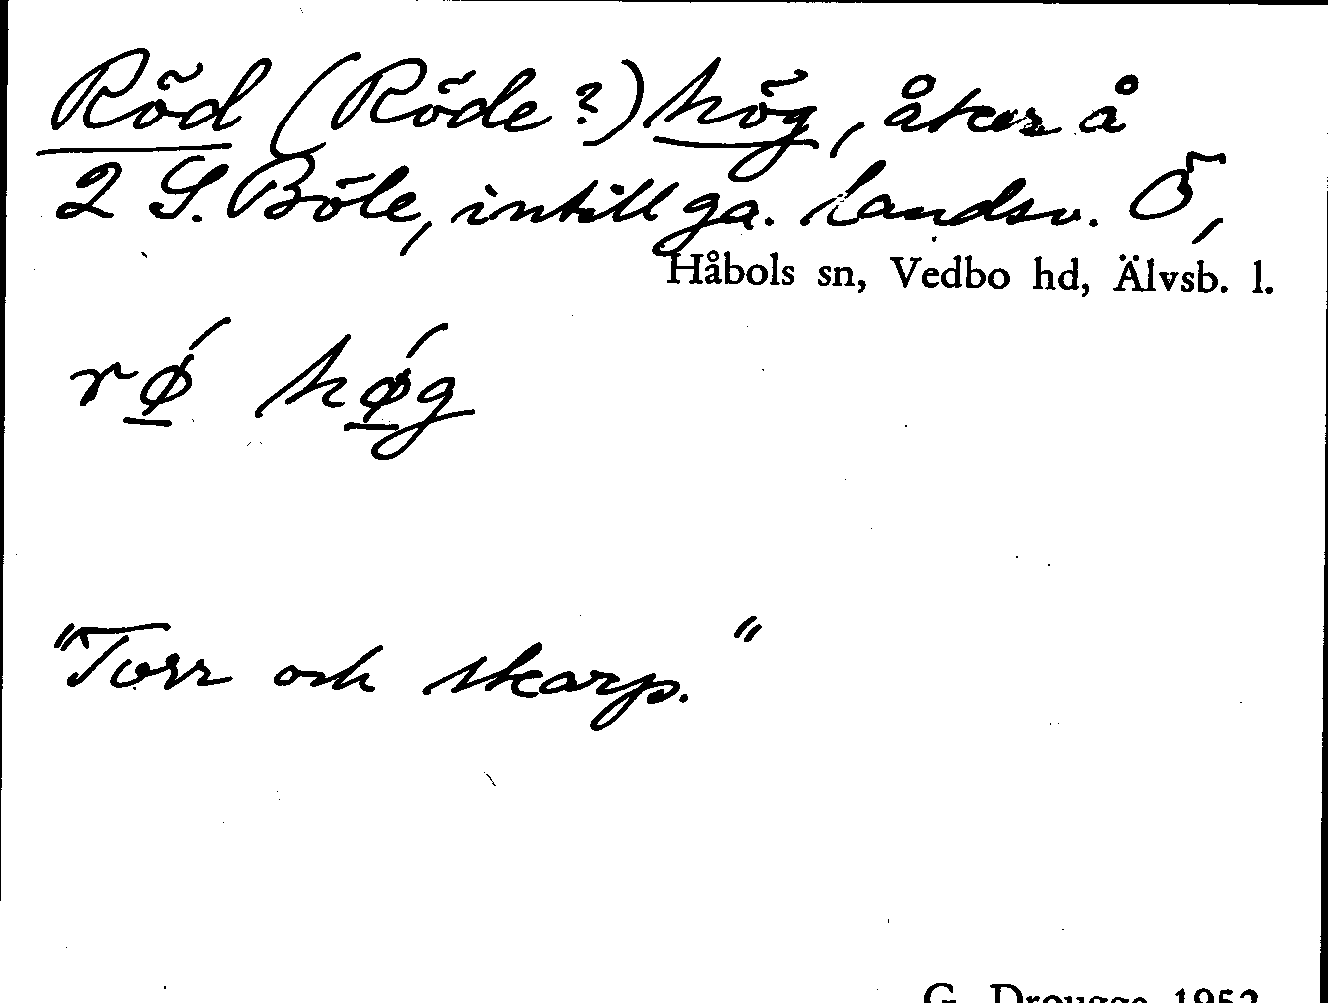 Röd (Röde?) hög, åker å
2 S. Böle, intill ga. landsv. Ö,
Håbols sn, Vedbo hd, Älvsb. l.
rǿ hǿg
"Torr och skarp."
G. Drougge 1952